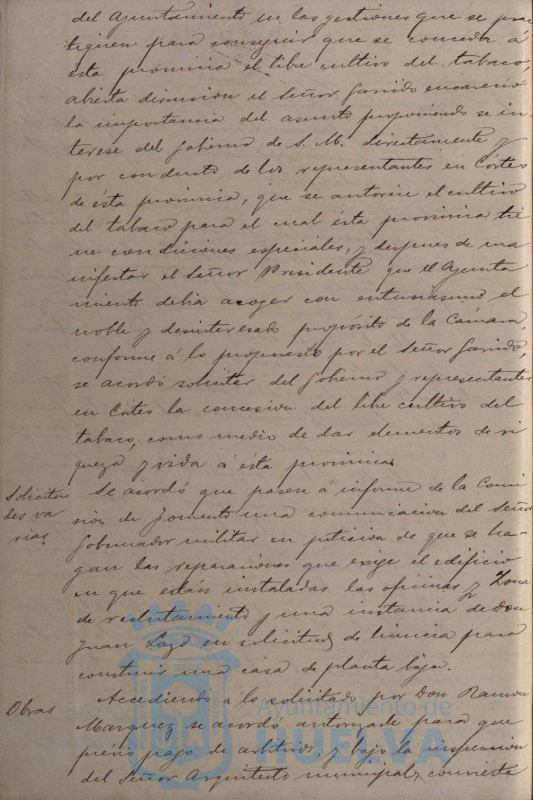 del Ayuntamiento en las gestiones que se prac
tiquen para conseguir que se conceda á
ésta provincia el libre cultivo del tabaco,
abierta discusion el Señor Garrido encareció
la importancia del asunto proponiendo se in
terese del Gobierno de S. M. directamente y
por conducto de los representantes en Córtes
de ésta provincia, que se autorice el cultivo
del tabaco para el cual ésta provincia tie
ne condiciones especiales, y despues de ma
nifestar el Señor Presidente que el Ayunta
miento debia acoger con entusiasmo el
noble y desinteresado propósito de la Cámara,
conforme á lo propuesto por el Señor Garrido,
se acordó solicitar del Gobierno y representantes
en Córtes la concesion del libre cultivo del
tabaco, como medio de dar elementos de ri
queza y vida á ésta provincia.
Solicitu
des va
rias.
Se acordó que pasen á informe de la Comi
sion de Fomento una comunicacion del Señor
Gobernador militar en peticion de que se ha-
gan las reparaciones que exige el edificio
en que están instaladas las oficinas y Zona
de reclutamiento y una instancia de Don
Juan Lazo en solicitud de licencia para
construir una casa de planta baja.
Obras
Accediendo á lo solicitado por Don Ramon
Marquez se acordó autorizarle para que
prévio pago de arbitrios, y bajo la inspeccion
del Señor Arquitecto municipal, convierta
Ayuntamiento de
HUELVA